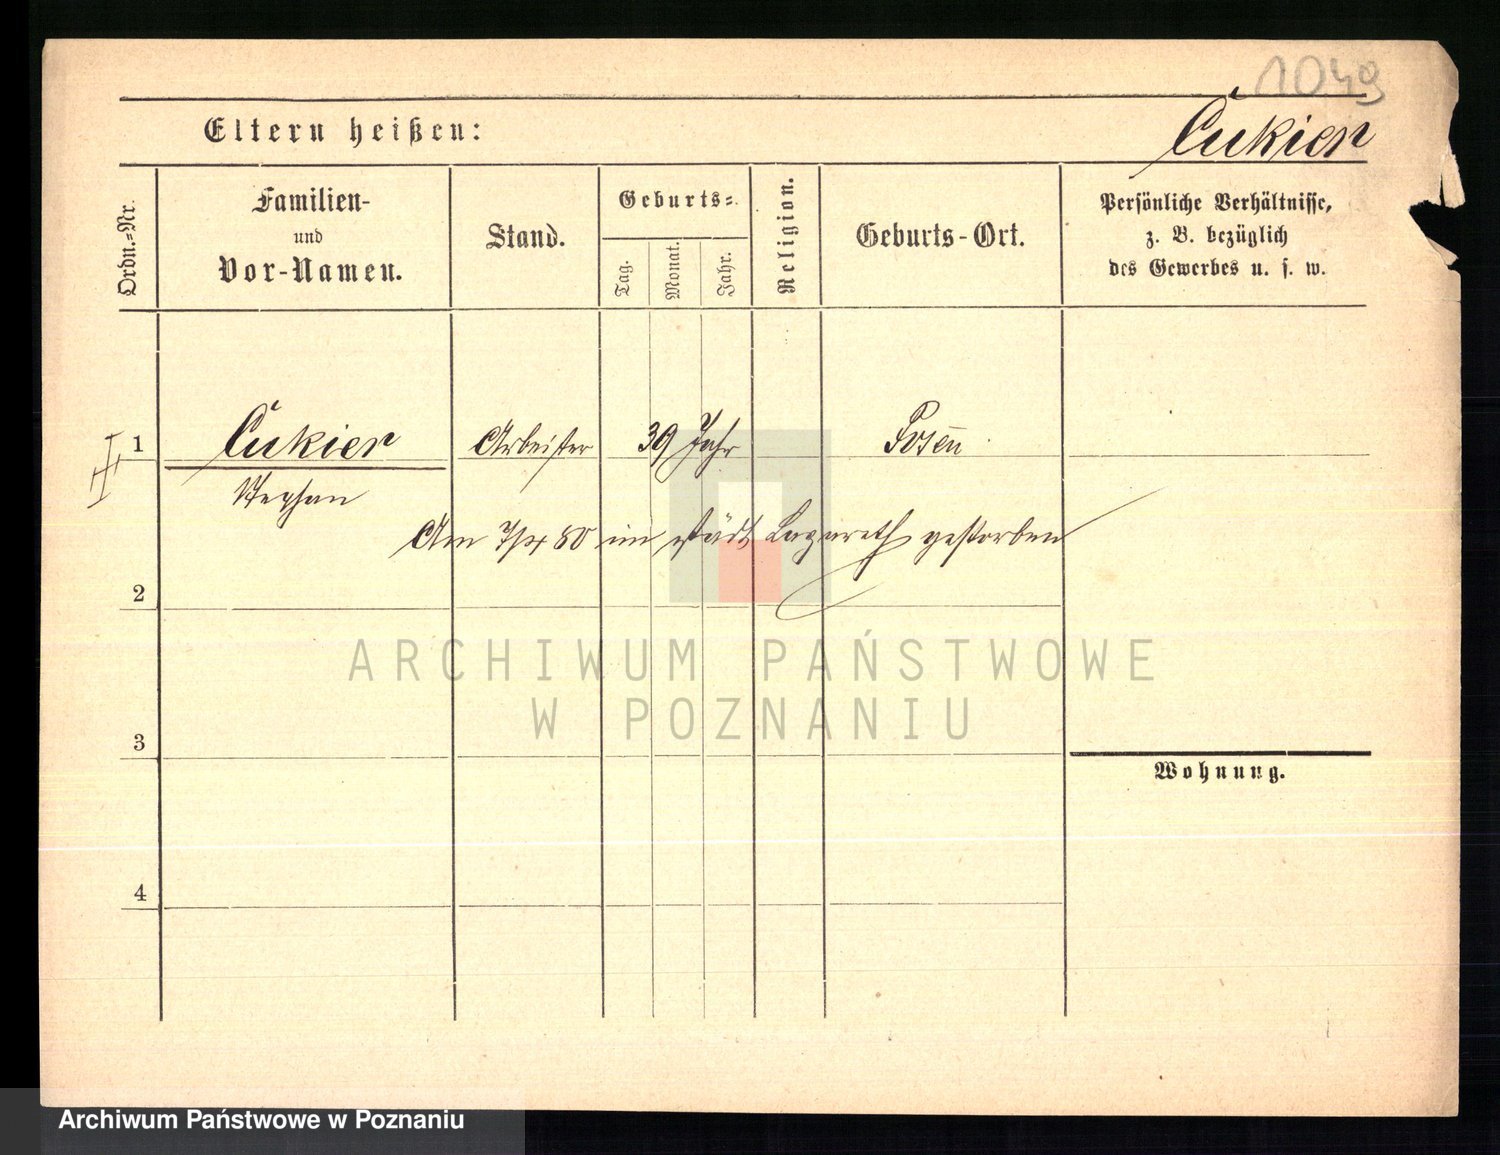 1049
Eltern heißen:
Cukier
Ordn.-Nr.
Familien-
und
Vor-Namen.
Stand.
Geburts-
Tag.
Monat.
Jahr.
Religion.
Geburts-Ort.
Persönliche Verhältnisse,
z. B. bezüglich
des Gewerbes u. s. w.
1
Cukier
Arbeiter
39 Jahr
Posen
Stephan
Am 7/ 80 im städt Lazareth gestorben
2
ARCHIWUM PAŃSTWOWE
W POZNANIU
3
Wohnung.
4
Archiwum Państwowe w Poznaniu